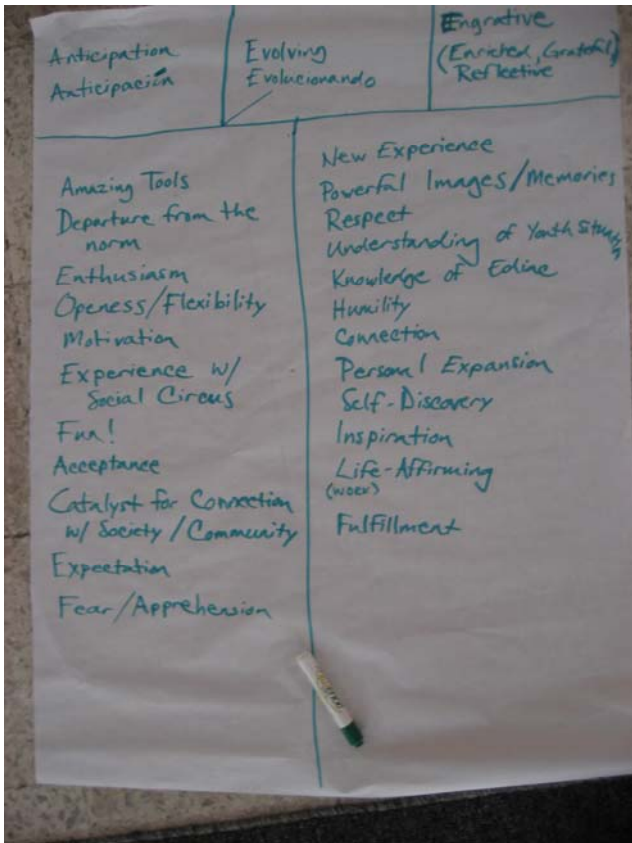 Anticipation
Anticipación
Evolving
Evolucionando
Engrative
(Enriched, Grateful,
Reflective
Amazing Tools
Departure from the
norm
Enthusiasm
Openess/Flexibility
Motivation
Experience w/
Social Circus
Fun!
Acceptance
Catalyst for Connection
w/ Society/Community
Expectation
Fear/Apprehension
New Experience
Powerful Images/Memories
Respect
Understanding of Youth Situation
Knowledge of
Humility
Connection
Personal Expansion
Self-Discovery
Inspiration
Life-Affirming
(work)
Fulfillment